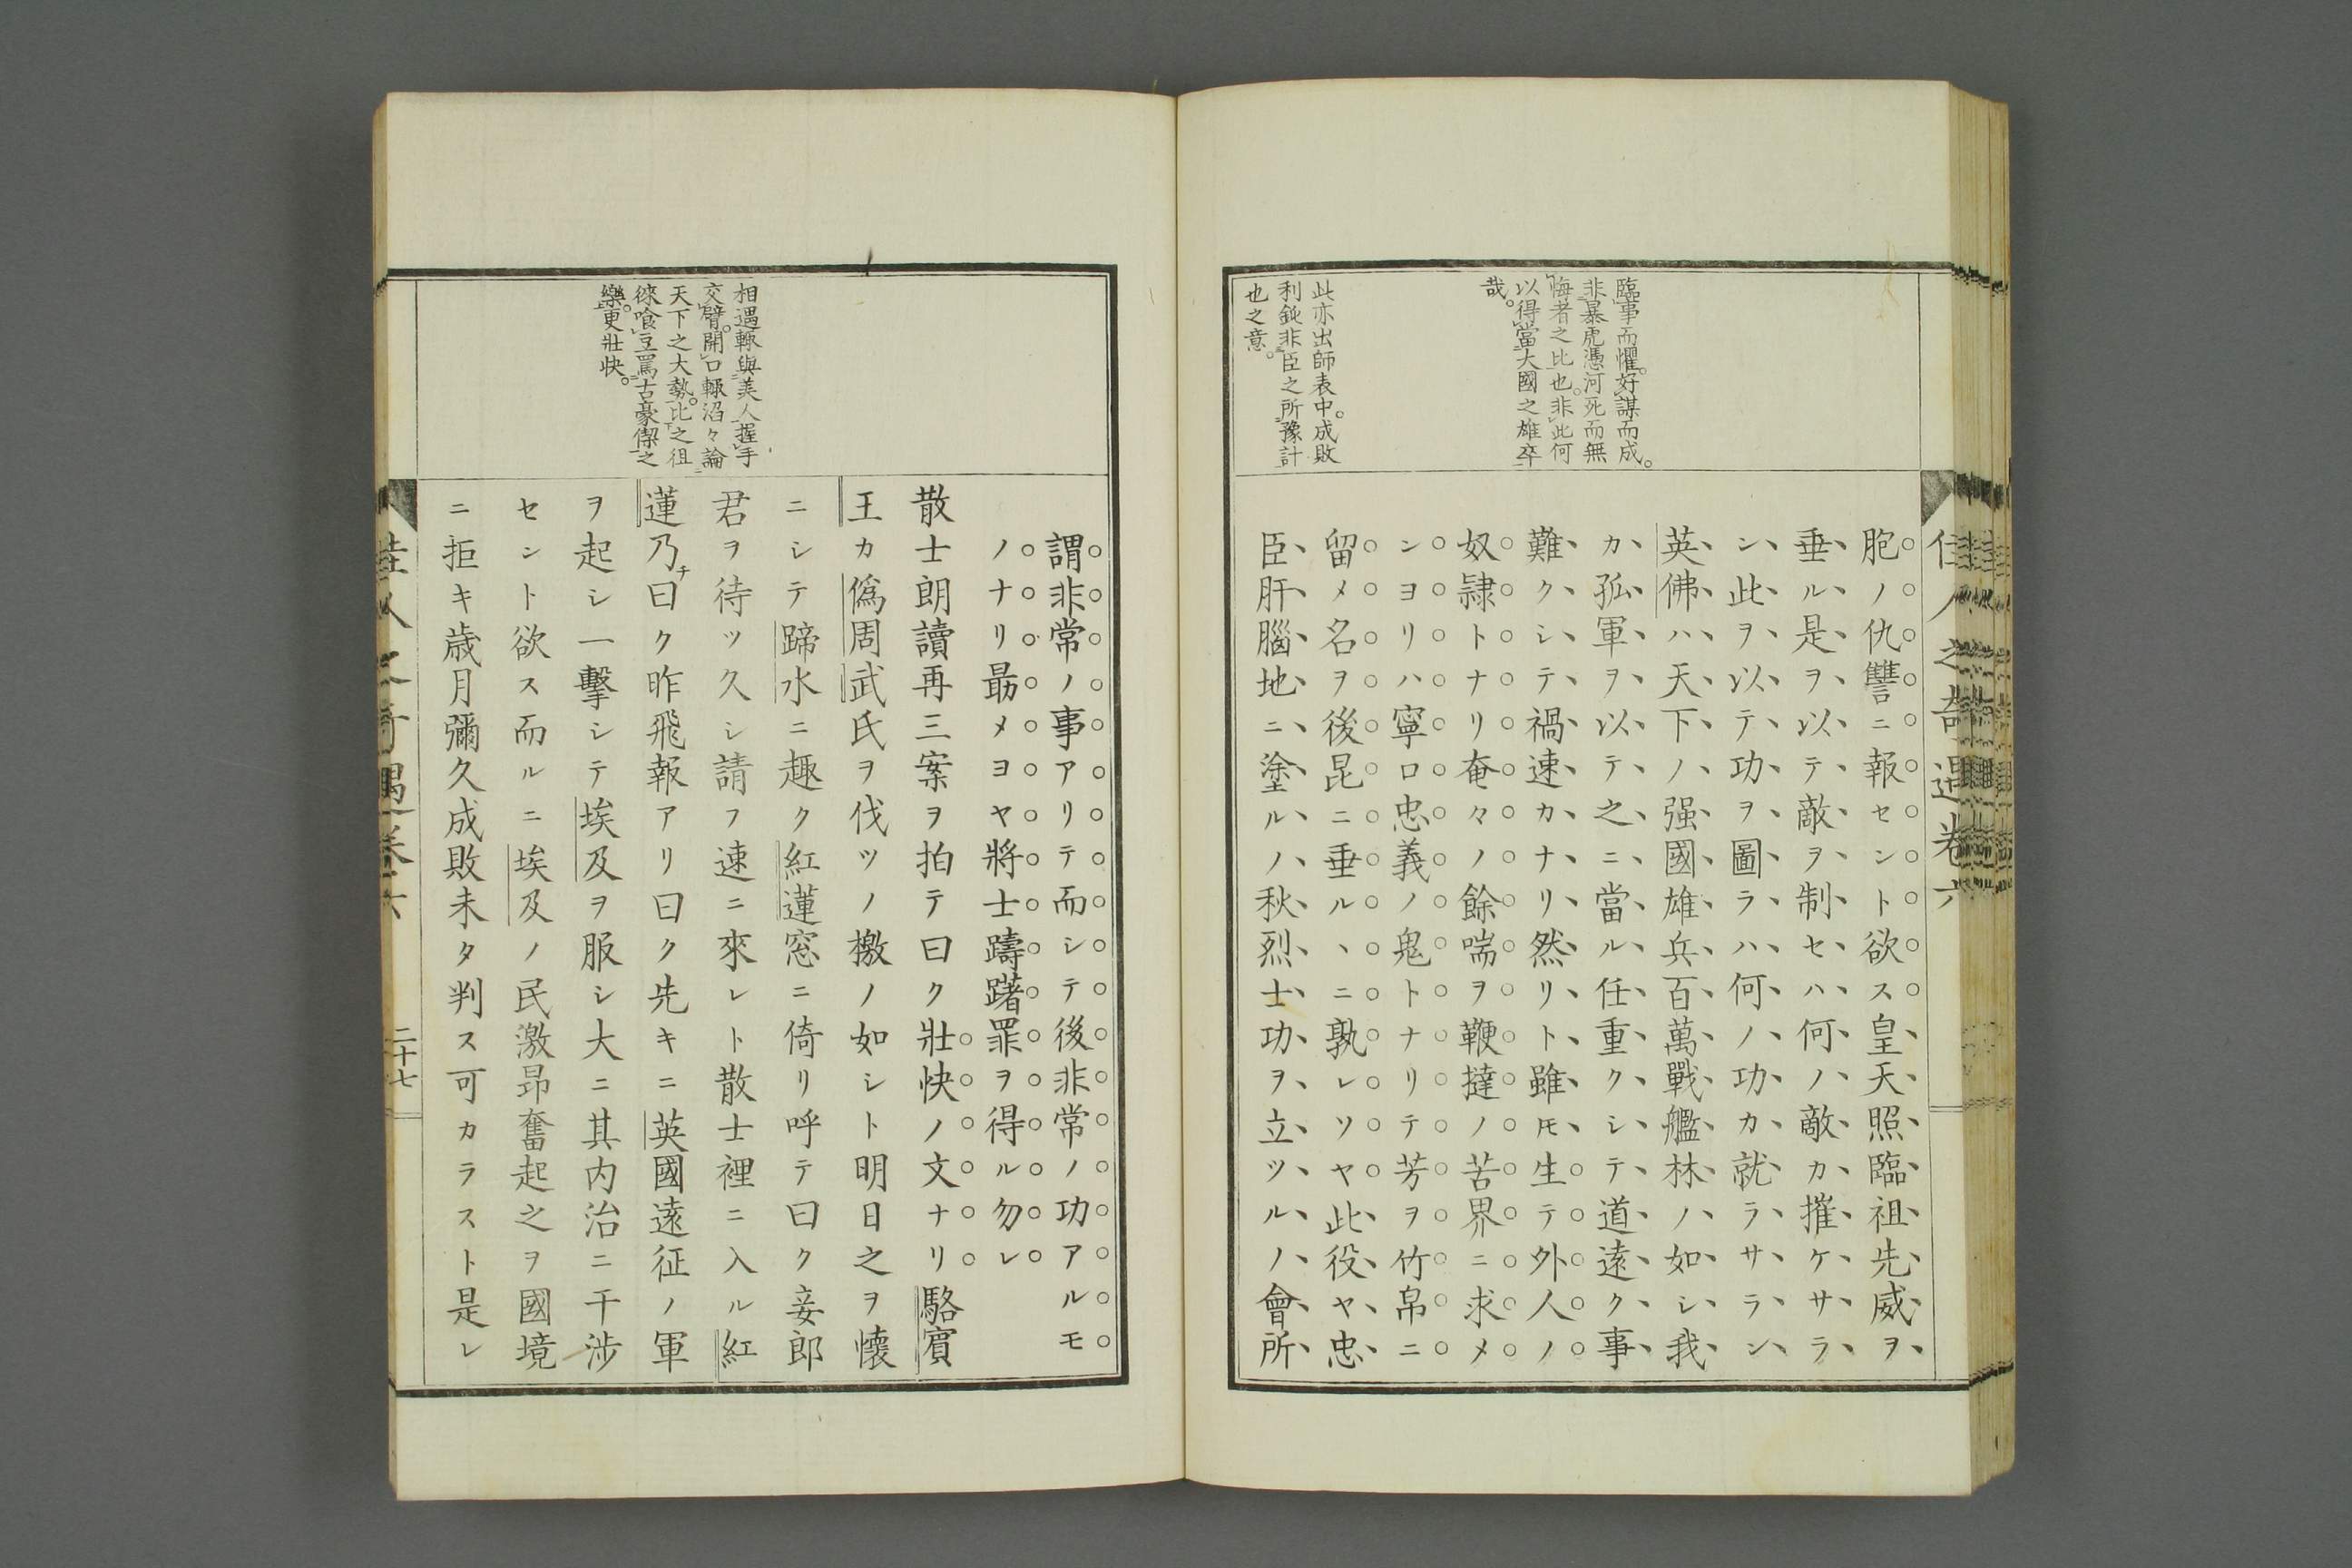 佳人之奇遇卷六
臨事而懼。好謀而成。
非暴虎憑河死而無
悔者之比也。非此何
以得當大國之雄卒
哉。
此亦出師表中。成敗
利鈍非臣之所豫計
也之意。
胞ノ仇讐ニ報セント欲ス皇天照臨祖先威ヲ
垂ル是ヲ以テ敵ヲ制セハ何ノ敵カ摧ケサラ
ン此ヲ以テ功ヲ圖ラハ何ノ功カ就ラサラン
英佛ハ天下ノ强國雄兵百萬戰艦林ノ如シ我
カ孤軍ヲ以テ之ニ當ル任重クシテ道遠ク事
難クシテ禍速カナリ然リト雖モ生テ外人ノ
奴隷トナリ奄々ノ餘喘ヲ鞭撻ノ苦界ニ求メ
ンヨリハ寧ロ忠義ノ鬼トナリテ芳ヲ竹帛ニ
留メ名ヲ後昆ニ垂ルヽニ孰レソヤ此役ヤ忠
臣肝腦地ニ塗ルノ秋烈士功ヲ立ツルノ會所
相遇輙與美人握手
交臂。開口輙滔々論
天下之大勢。比之徂
徠喰豆罵古豪傑之
樂。更壯快。
謂非常ノ事アリテ而シテ後非常ノ功アルモ
ノナリ勗メヨヤ將士躊躇罪ヲ得ル勿レ
散士朗讀再三案ヲ拍テ曰ク壯快ノ文ナリ駱賓
王カ僞周武氏ヲ伐ツノ檄ノ如シト明日之ヲ懐
ニシテ蹄水ニ趣ク紅蓮窓ニ倚リ呼テ曰ク妾郎
君ヲ待ツ久シ請フ速ニ來レト散士裡ニ入ル紅
蓮乃チ曰ク昨飛報アリ曰ク先キニ英國遠征ノ軍
ヲ起シ一擊シテ埃及ヲ服シ大ニ其内治ニ干渉
セント欲ス而ルニ埃及ノ民激昂奮起之ヲ國境
ニ拒キ歳月彌久成敗未タ判ス可カラスト是レ
佳人之奇遇卷六
二十七